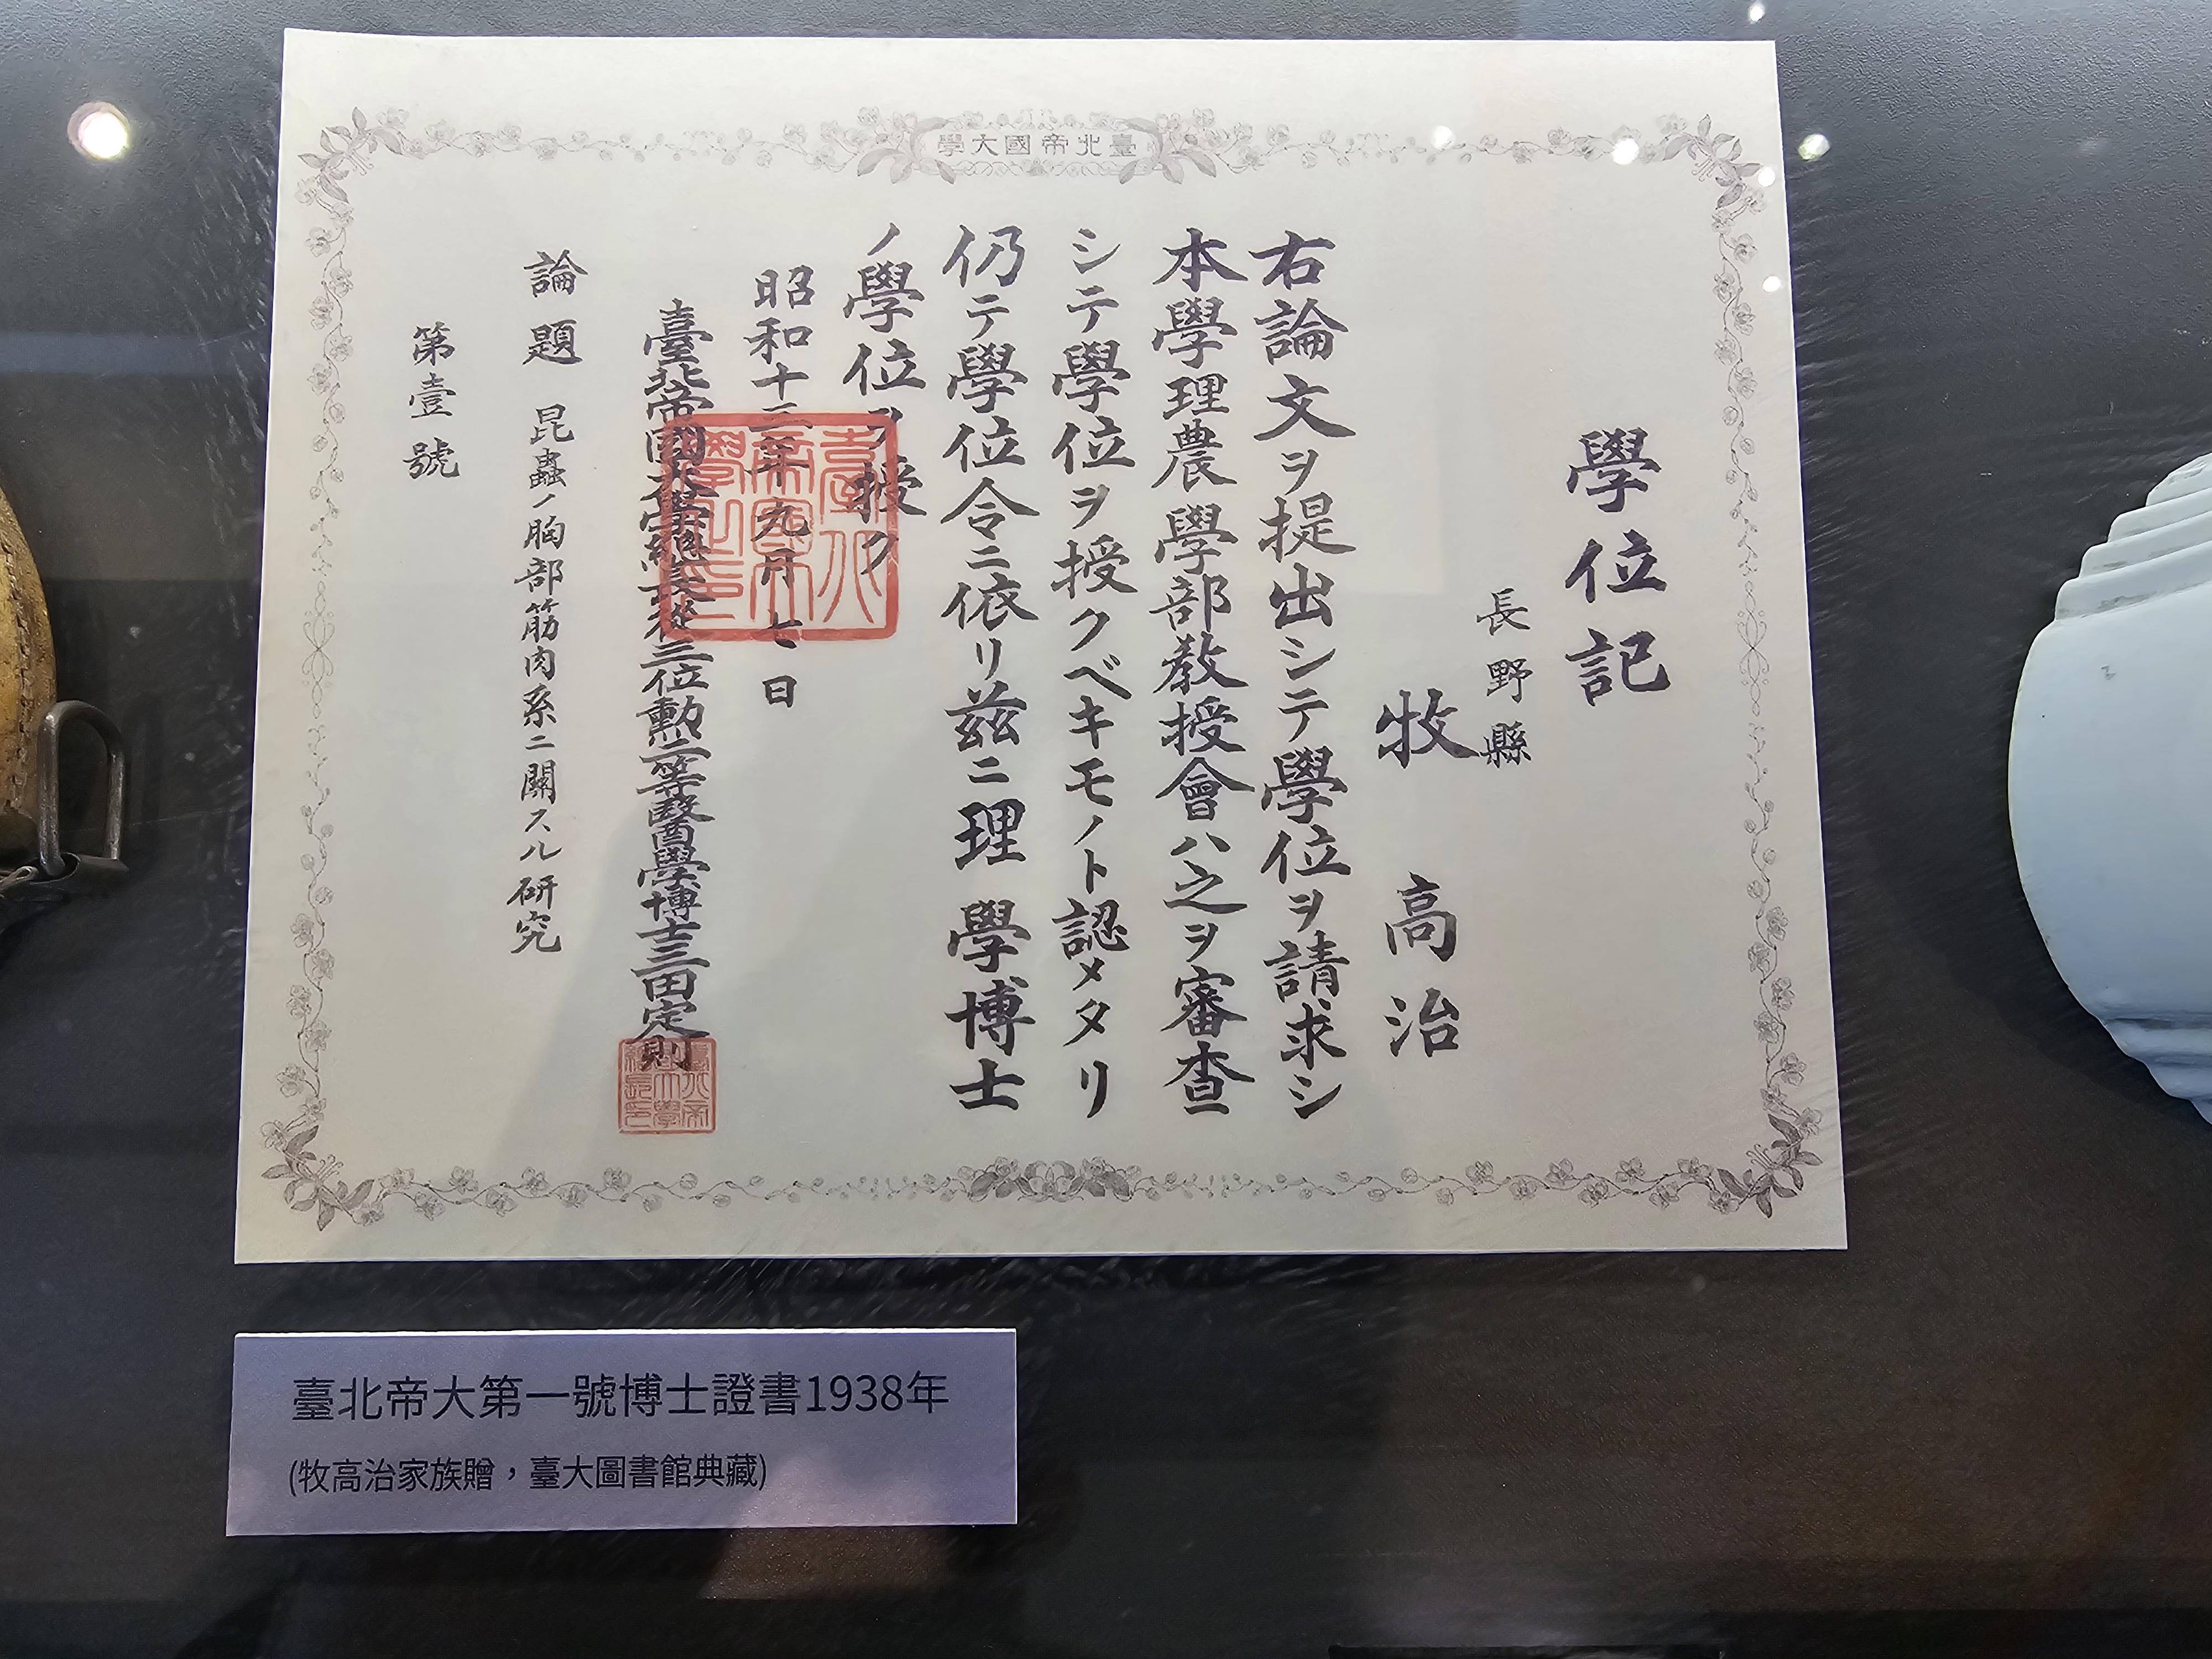 臺北帝國大學
學位記
長野縣
牧高治
右論文ヲ提出シテ學位ヲ請求シ
本學理農學部教授會ハ之ヲ審査
シテ學位ヲ授クベキモノト認メタリ
仍テ學位令ニ依リ茲ニ理學博士
ノ學位ヲ授ク
昭和十三年九月七日
臺北帝國大學總長從三位勳二等醫學博士三田定則
臺北帝國大學之印
論題 昆蟲ノ胸部筋肉系ニ關スル研究
第壹號
臺北帝大第一號博士證書1938年
(牧高治家族贈，臺大圖書館典藏)